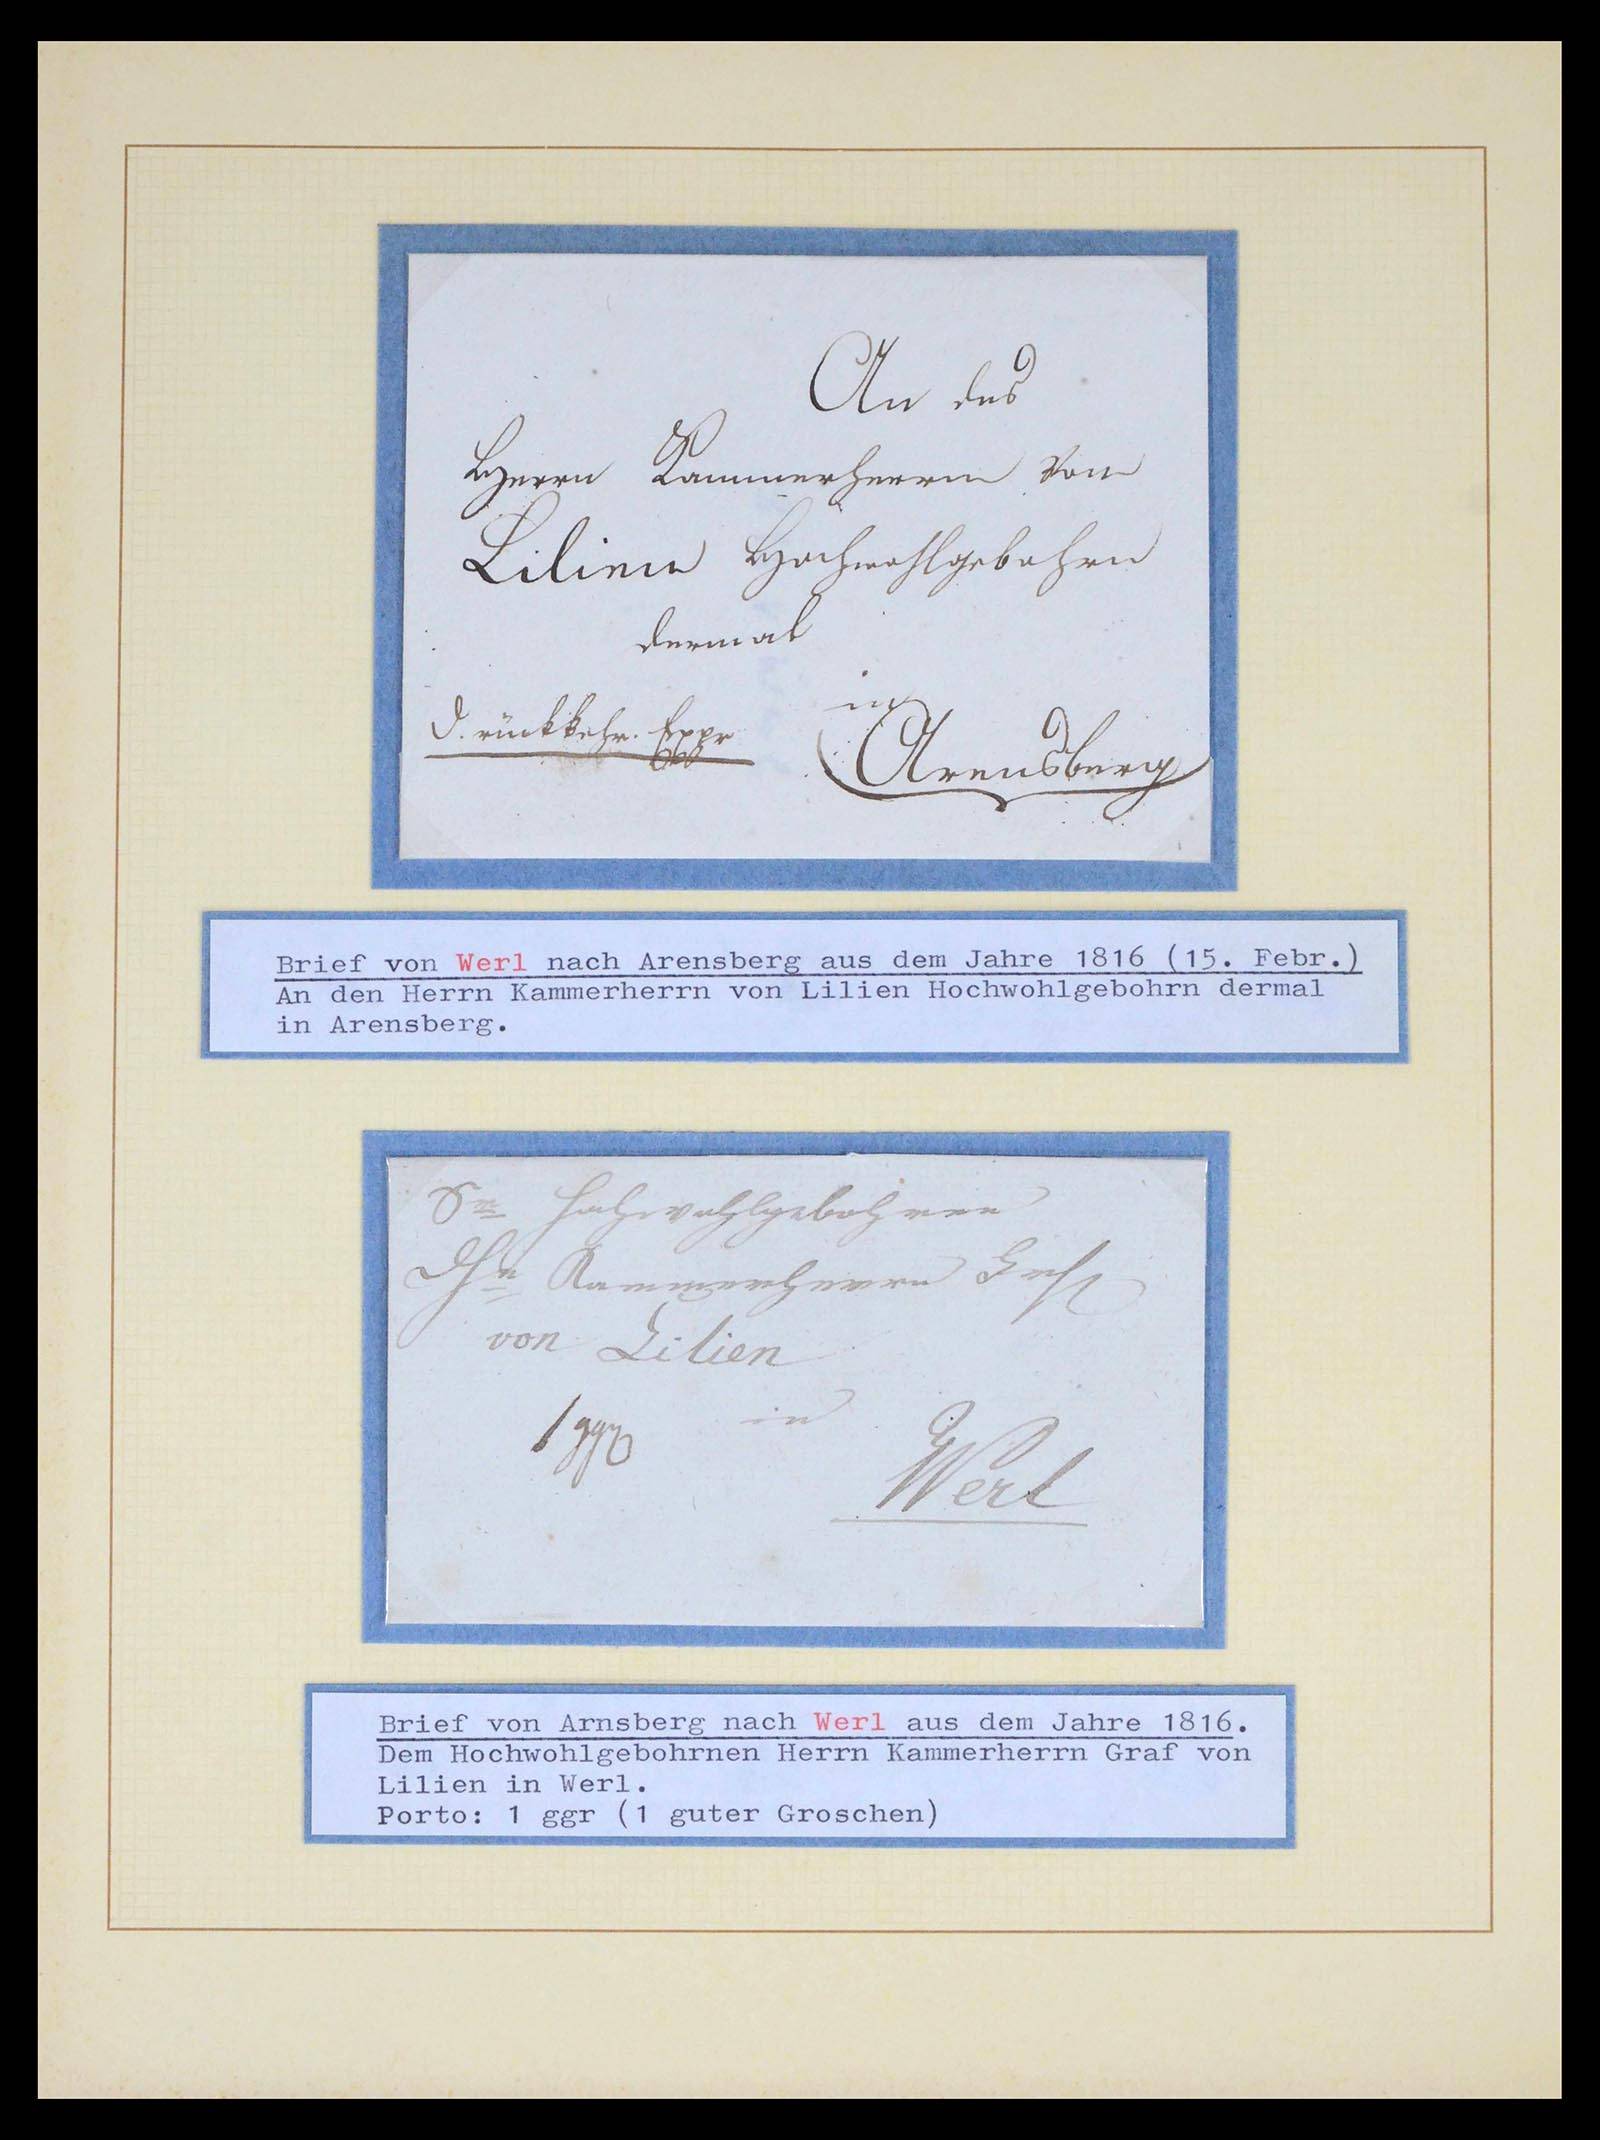 An des
Herrn Kammerherrn von
Lilien Hochwohlgebohrn
dermal
in
d. rückkehr. Expr
Arensberg
Brief von Werl nach Arensberg aus dem Jahre 1816 (15. Febr.)
An den Herrn Kammerherrn von Lilien Hochwohlgebohrn dermal
in Arensberg.
Sr Hochwohlgebohren
Kammerherrn
von Lilien
1 ggr in
Werl
Brief von Arnsberg nach Werl aus dem Jahre 1816.
Dem Hochwohlgebohrnen Herrn Kammerherrn Graf von
Lilien in Werl.
Porto: 1 ggr (1 guter Groschen)